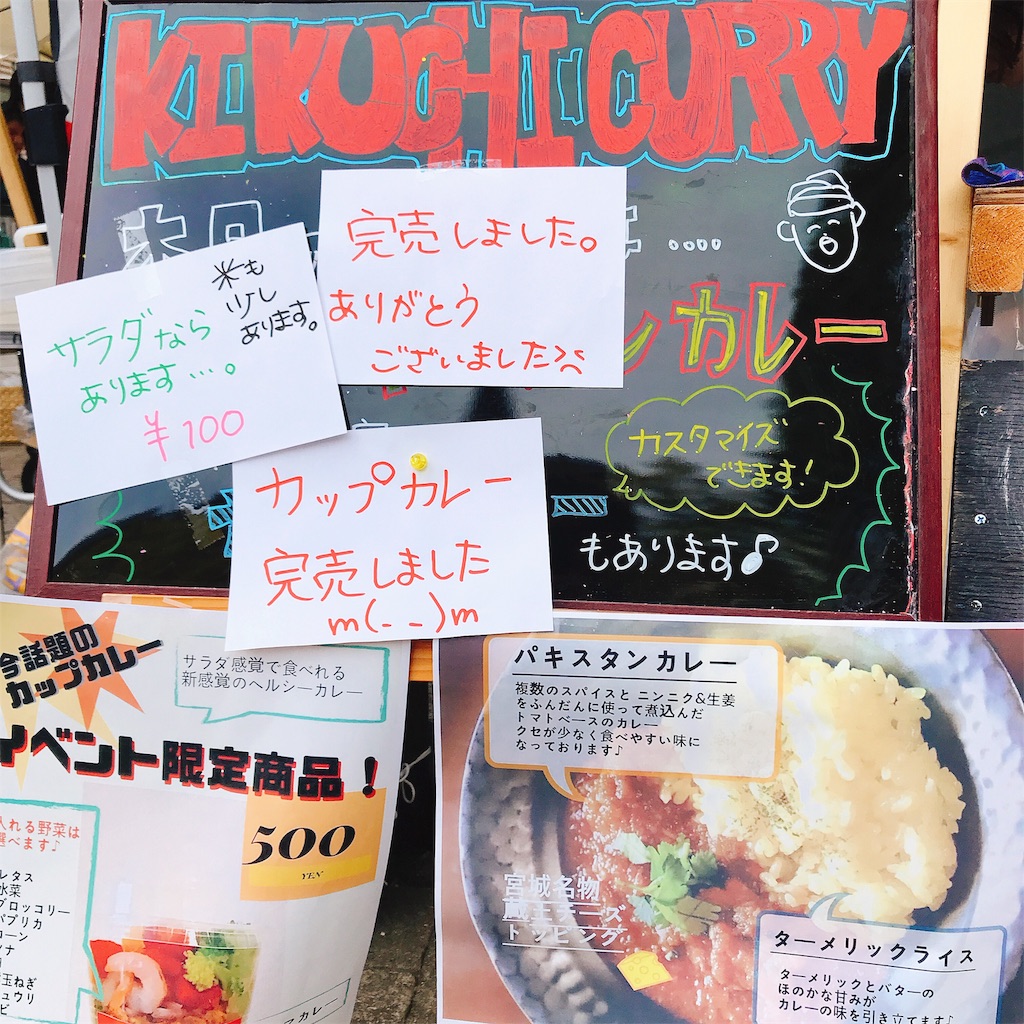 KIKUCHI CURRY
本日
....
カレー
完売しました。
ありがとう
ございました
サラダなら
あります…。
¥100
米も
少し
あります。
カスタマイズ
できます!
カップカレー
完売しました
m(--)m
もあります♪
今話題の
カップカレー
サラダ感覚で食べれる
新感覚のヘルシーカレー
イベント限定商品!
入れる野菜は
選べます♪
500
YEN
レタス
水菜
ブロッコリー
パプリカ
コーン
ツナ
玉ねぎ
キュウリ
パキスタンカレー
複数のスパイスと ニンニク&生姜
をふんだんに使って煮込んだ
トマトベースのカレー
クセが少なく食べやすい味に
なっております♪
宮城名物
蔵王チーズ
トッピング
ターメリックライス
ターメリックとバターの
ほのかな甘みが
カレーの味を引き立てます♪